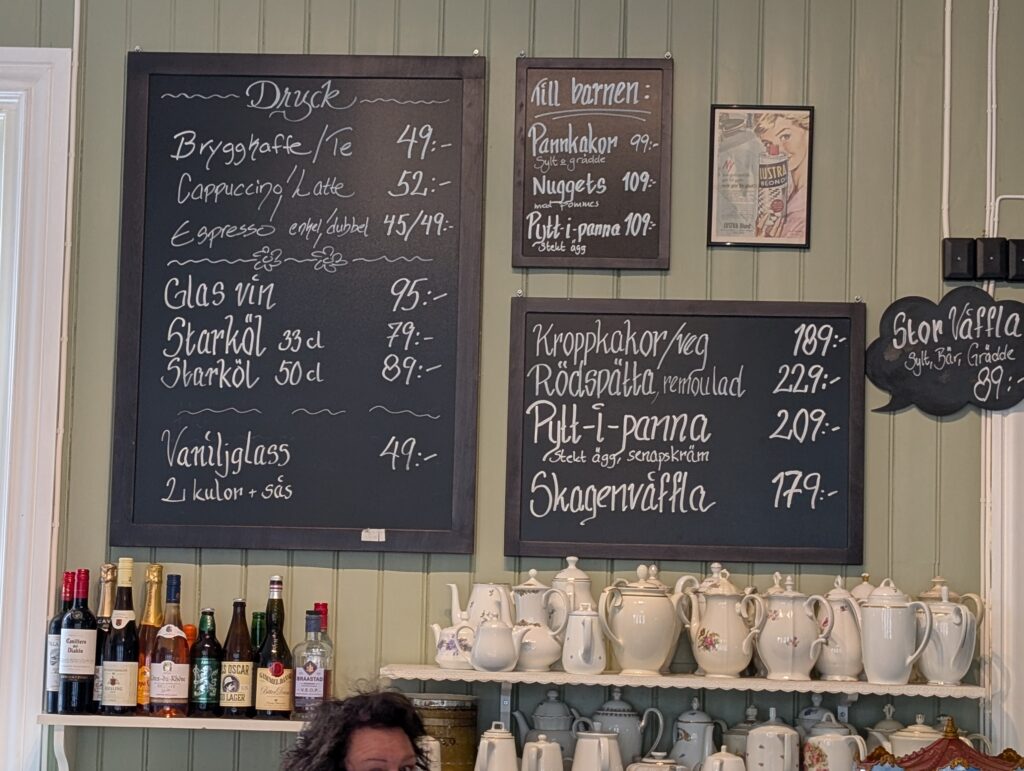 Dryck
Bryggkaffe/Te 49:-
Cappuccino/Latte 52:-
Espresso enkel/dubbel 45/49:-
Glas vin 95:-
Starköl 33 cl 79:-
Starköl 50 cl 89:-
Vaniljglass 49:-
2 kulor + sås
Till barnen:
Pannkakor 99:-
Sylt o grädde
Nuggets 109:-
med pommes
Pytt-i-panna 109:-
Stekt ägg
LUSTRA
BLOND
Kroppkakor/veg 189:-
Rödspätta, remoulad 229:-
Pytt-i-panna 209:-
Stekt ägg, senapskräm
Skagenvåffla 179:-
Stor Våffla
Sylt, Bär, Grädde
89:-
Casillero
del
Diablo
RIESLING
OSCAR
LAGER
BRAASTAD
V.S.O.P